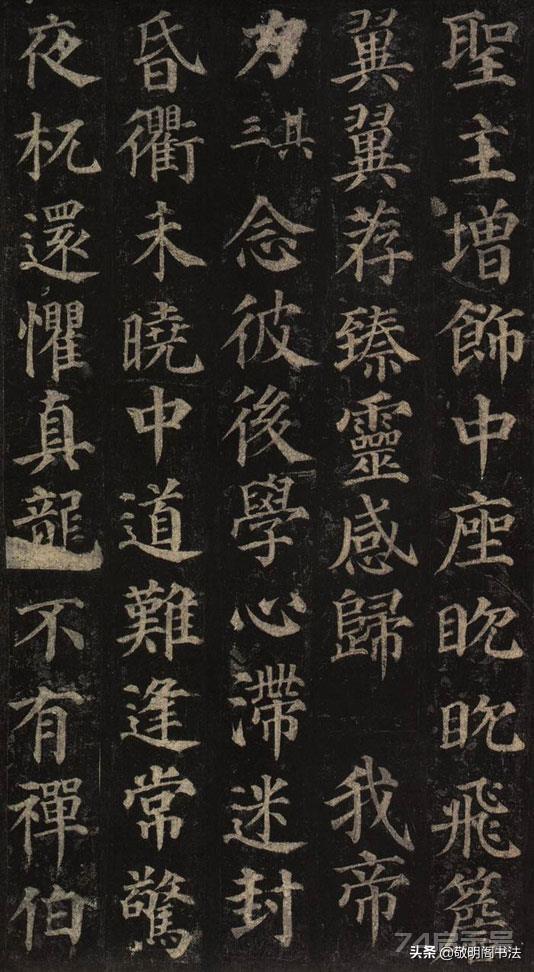 聖主增飾中座眈眈飛簷
翼翼荐臻靈感歸 我帝
力其三念彼後學心滯迷封
昏衢未曉中道難逢常驚
夜杌還懼真龍不有禪伯
头条 @敬明阁书法